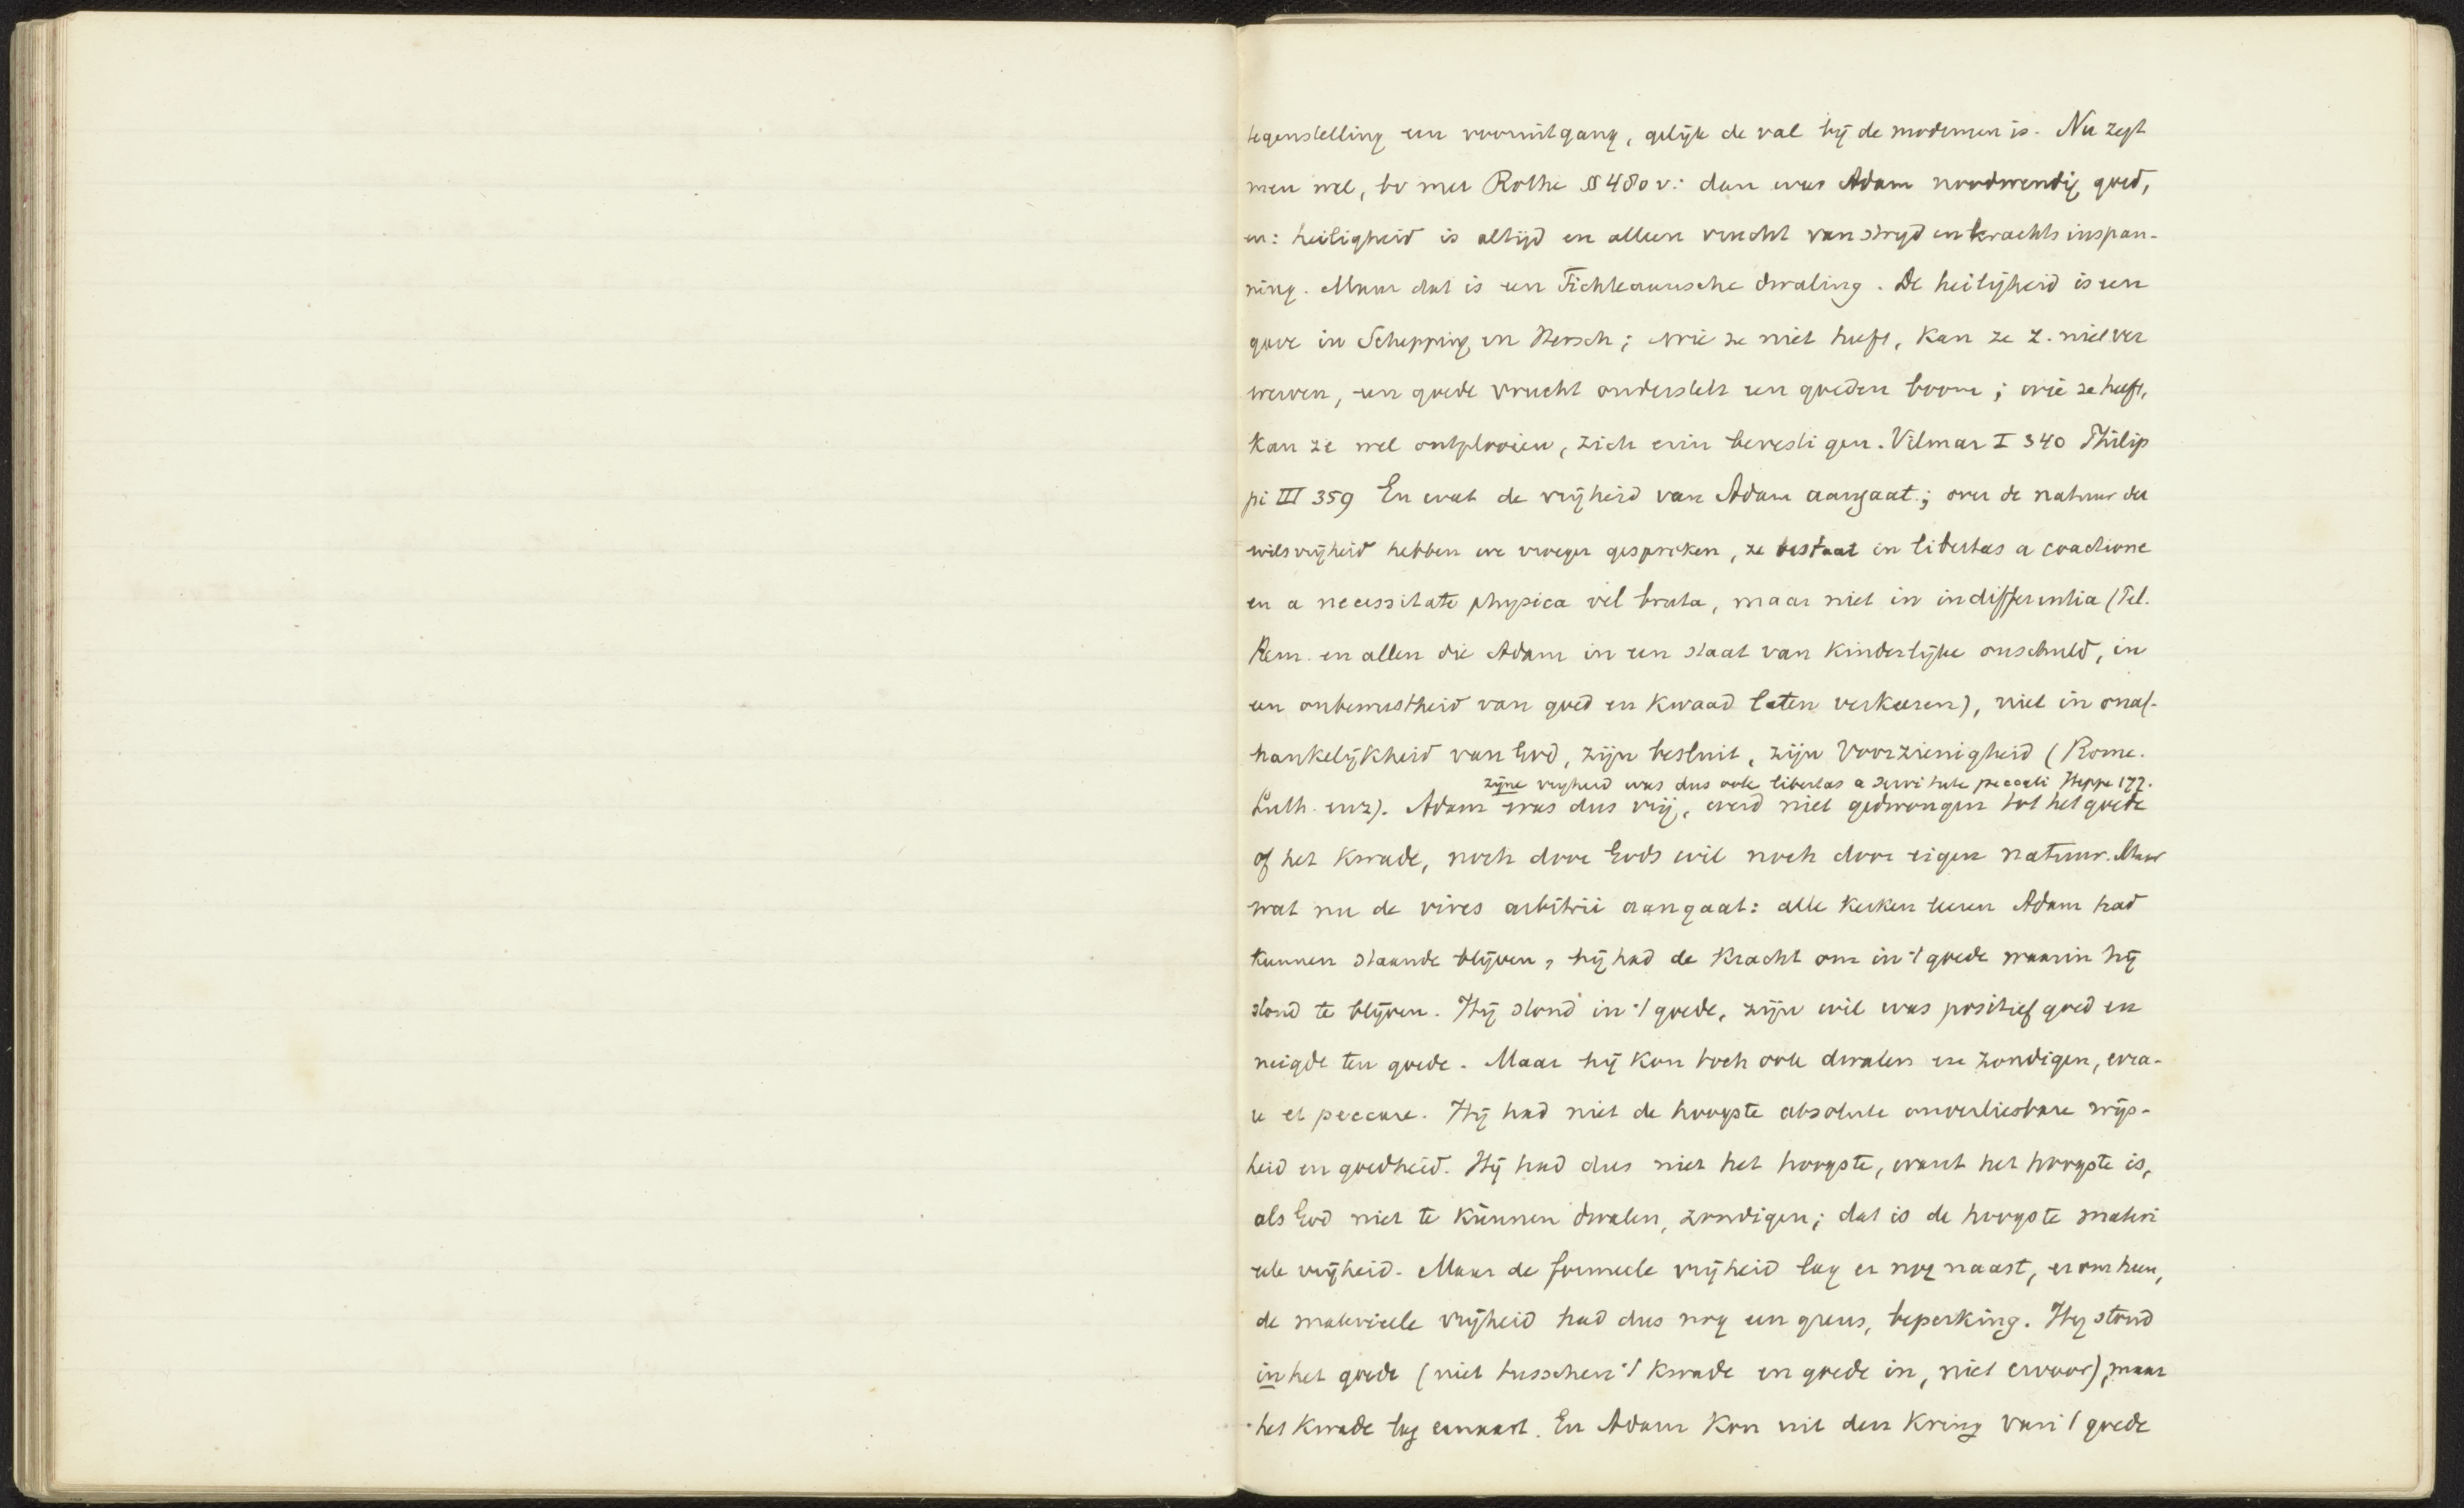 tegenstelling een vooruitgang, gelijk de val bij de modernen is. Nu zegt
men wel, bv met Rothe §§ 480 v: dan was Adam noodwendig goed,
en: heiligheid is altijd en alleen vrucht van strijd en krachtsinspan-
ning. Maar dat is een Fichteaansche dwaling. De heiligheid is een
gave in Schepping en Hersch; wie ze niet heeft, kan ze z. niet ver
werven, een goede vrucht onderstelt een goeden boom; wie ze heeft,
kan ze wel ontplooien, zich erin bevestigen. Vilmar I 340 Philip
pi III 359 En wat de vrijheid van Adam aangaat; over de natuur der
wilsvrijheid hebben we vroeger gesproken, ze bestaat in libertas a coactione
en a necessitate physica vel bruta, maar niet in indifferentia (Pel.
Rem. en allen die Adam in een staat van kinderlijke onschuld, in
een onbewustheid van goed en kwaad laten verkeeren), niet in onaf-
hankelijkheid van God, zijn besluit, zijn Voorzienigheid (Rome.
zijne vrijheid was dus ook libertas a servitute peccati Heppe 177.
Luth. enz). Adam was dus vrij, werd niet gedwongen tot het goede
of het kwade, noch door Gods wil noch door eigen natuur. Maar
wat nu de vires arbitrii aangaat: alle kerken leeren Adam had
kunnen staande blijven, hij had de kracht om in 't goede waarin hij
stond te blijven. Hij stond in 't goede, zijn wil was positief goed en
neigde ten goede. Maar hij kon toch ook dwalen en zondigen, erra-
re et peccare. Hij had niet de hoogste absolute onverliesbare wijs-
heid en goedheid. Hij had dus niet het hoogste, want het hoogste is,
als God niet te kunnen dwalen, zondigen; dat is de hoogste materi
eele vrijheid. Maar de formeele vrijheid lag er nog naast, er om heen,
de materieele vrijheid had dus nog een grens, beperking. Hij stond
in het goede (niet tusschen 't kwade en goede in, niet ervoor), maar
het kwade lag ernaast. En Adam kon uit den kring van 't goede